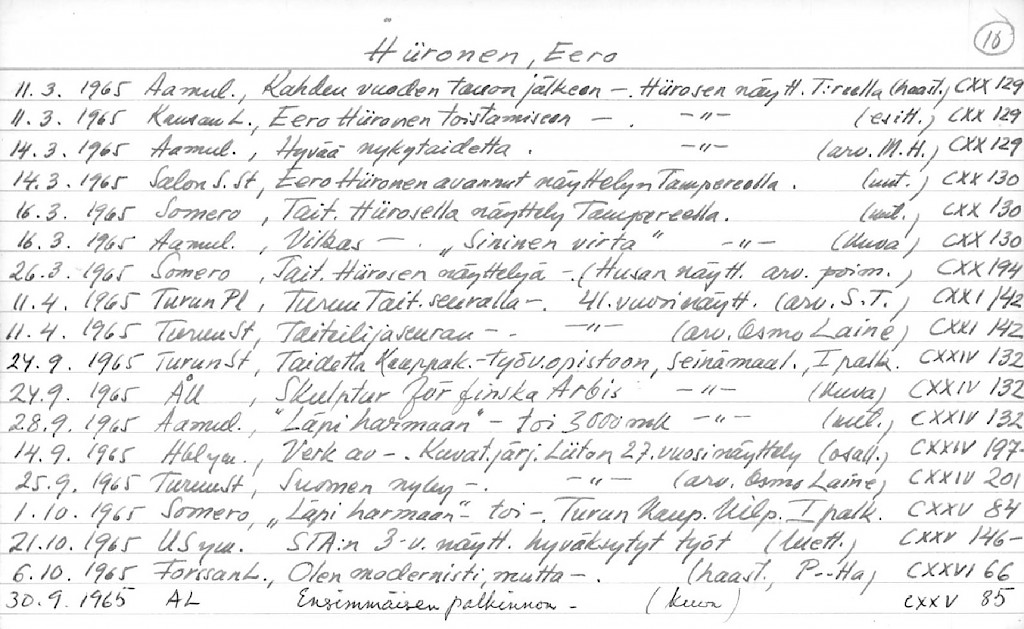 18
Hiironen, Eero
11.3. 1965 Aamul., Kahden vuoden tauon jälkeen -. Hiirosen näytt. T:reella (haast.) CXX 129
11.3. 1965 Kansan L., Eero Hiironen toistamiseen -. -"- (esitt.) CXX 129
14.3. 1965 Aamul., Hyvää nykytaidetta. -"- (arv. M.H.) CXX 129
14.3. 1965 Salon S. St, Eero Hiironen avannut näyttelyn Tampereella. (uut.) CXX 130
16.3. 1965 Somero, Tait. Hiirosella näyttely Tampereella. (uut.) CXX 130
16.3. 1965 Aamul., Vilkas -. "Sininen virta" -"- (kuva) CXX 130
26.3. 1965 Somero, Tait. Hiirosen näyttelyä -. (Husan näytt. arv. poim.) CXX 194
11.4. 1965 Turun Pl, Turun Tait.seuralla -. 41. vuosinäytt. (arv. S.T.) CXXI 142
11.4. 1965 TurunSt, Taiteilijaseuran -. -"- (arv. Osmo Laine) CXXI 142
24.9. 1965 TurunSt, Taidetta Kauppak.-työv.opistoon, seinämaal., I palk. CXXIV 132
24.9. 1965 ÅU, Skulptur för finska Arbis -"- (kuva) CXXIV 132
28.9. 1965 Aamul., "Läpi harmaan" - toi 3000 mk -"- (uut.) CXXIV 132
14.9. 1965 Hblym., Verk av -. Kuvat.järj. Liiton 27. vuosinäyttely (osall.) CXXIV 197-
25.9. 1965 TurunSt, Suomen nyky -. -"- (arv. Osmo Laine) CXXIV 201
1.10. 1965 Somero, "Läpi harmaan" - toi -. Turun kaup. kilp. I palk. CXXV 84
21.10. 1965 USym. STA:n 3-v. näytt. hyväksytyt työt (luett.) CXXV 146-
6.10. 1965 Forssan L., Olen modernisti, mutta -. (haast., P--Ha) CXXVI 66
30.9. 1965 AL Ensimmäisen palkinnon - (kuva) CXXV 85